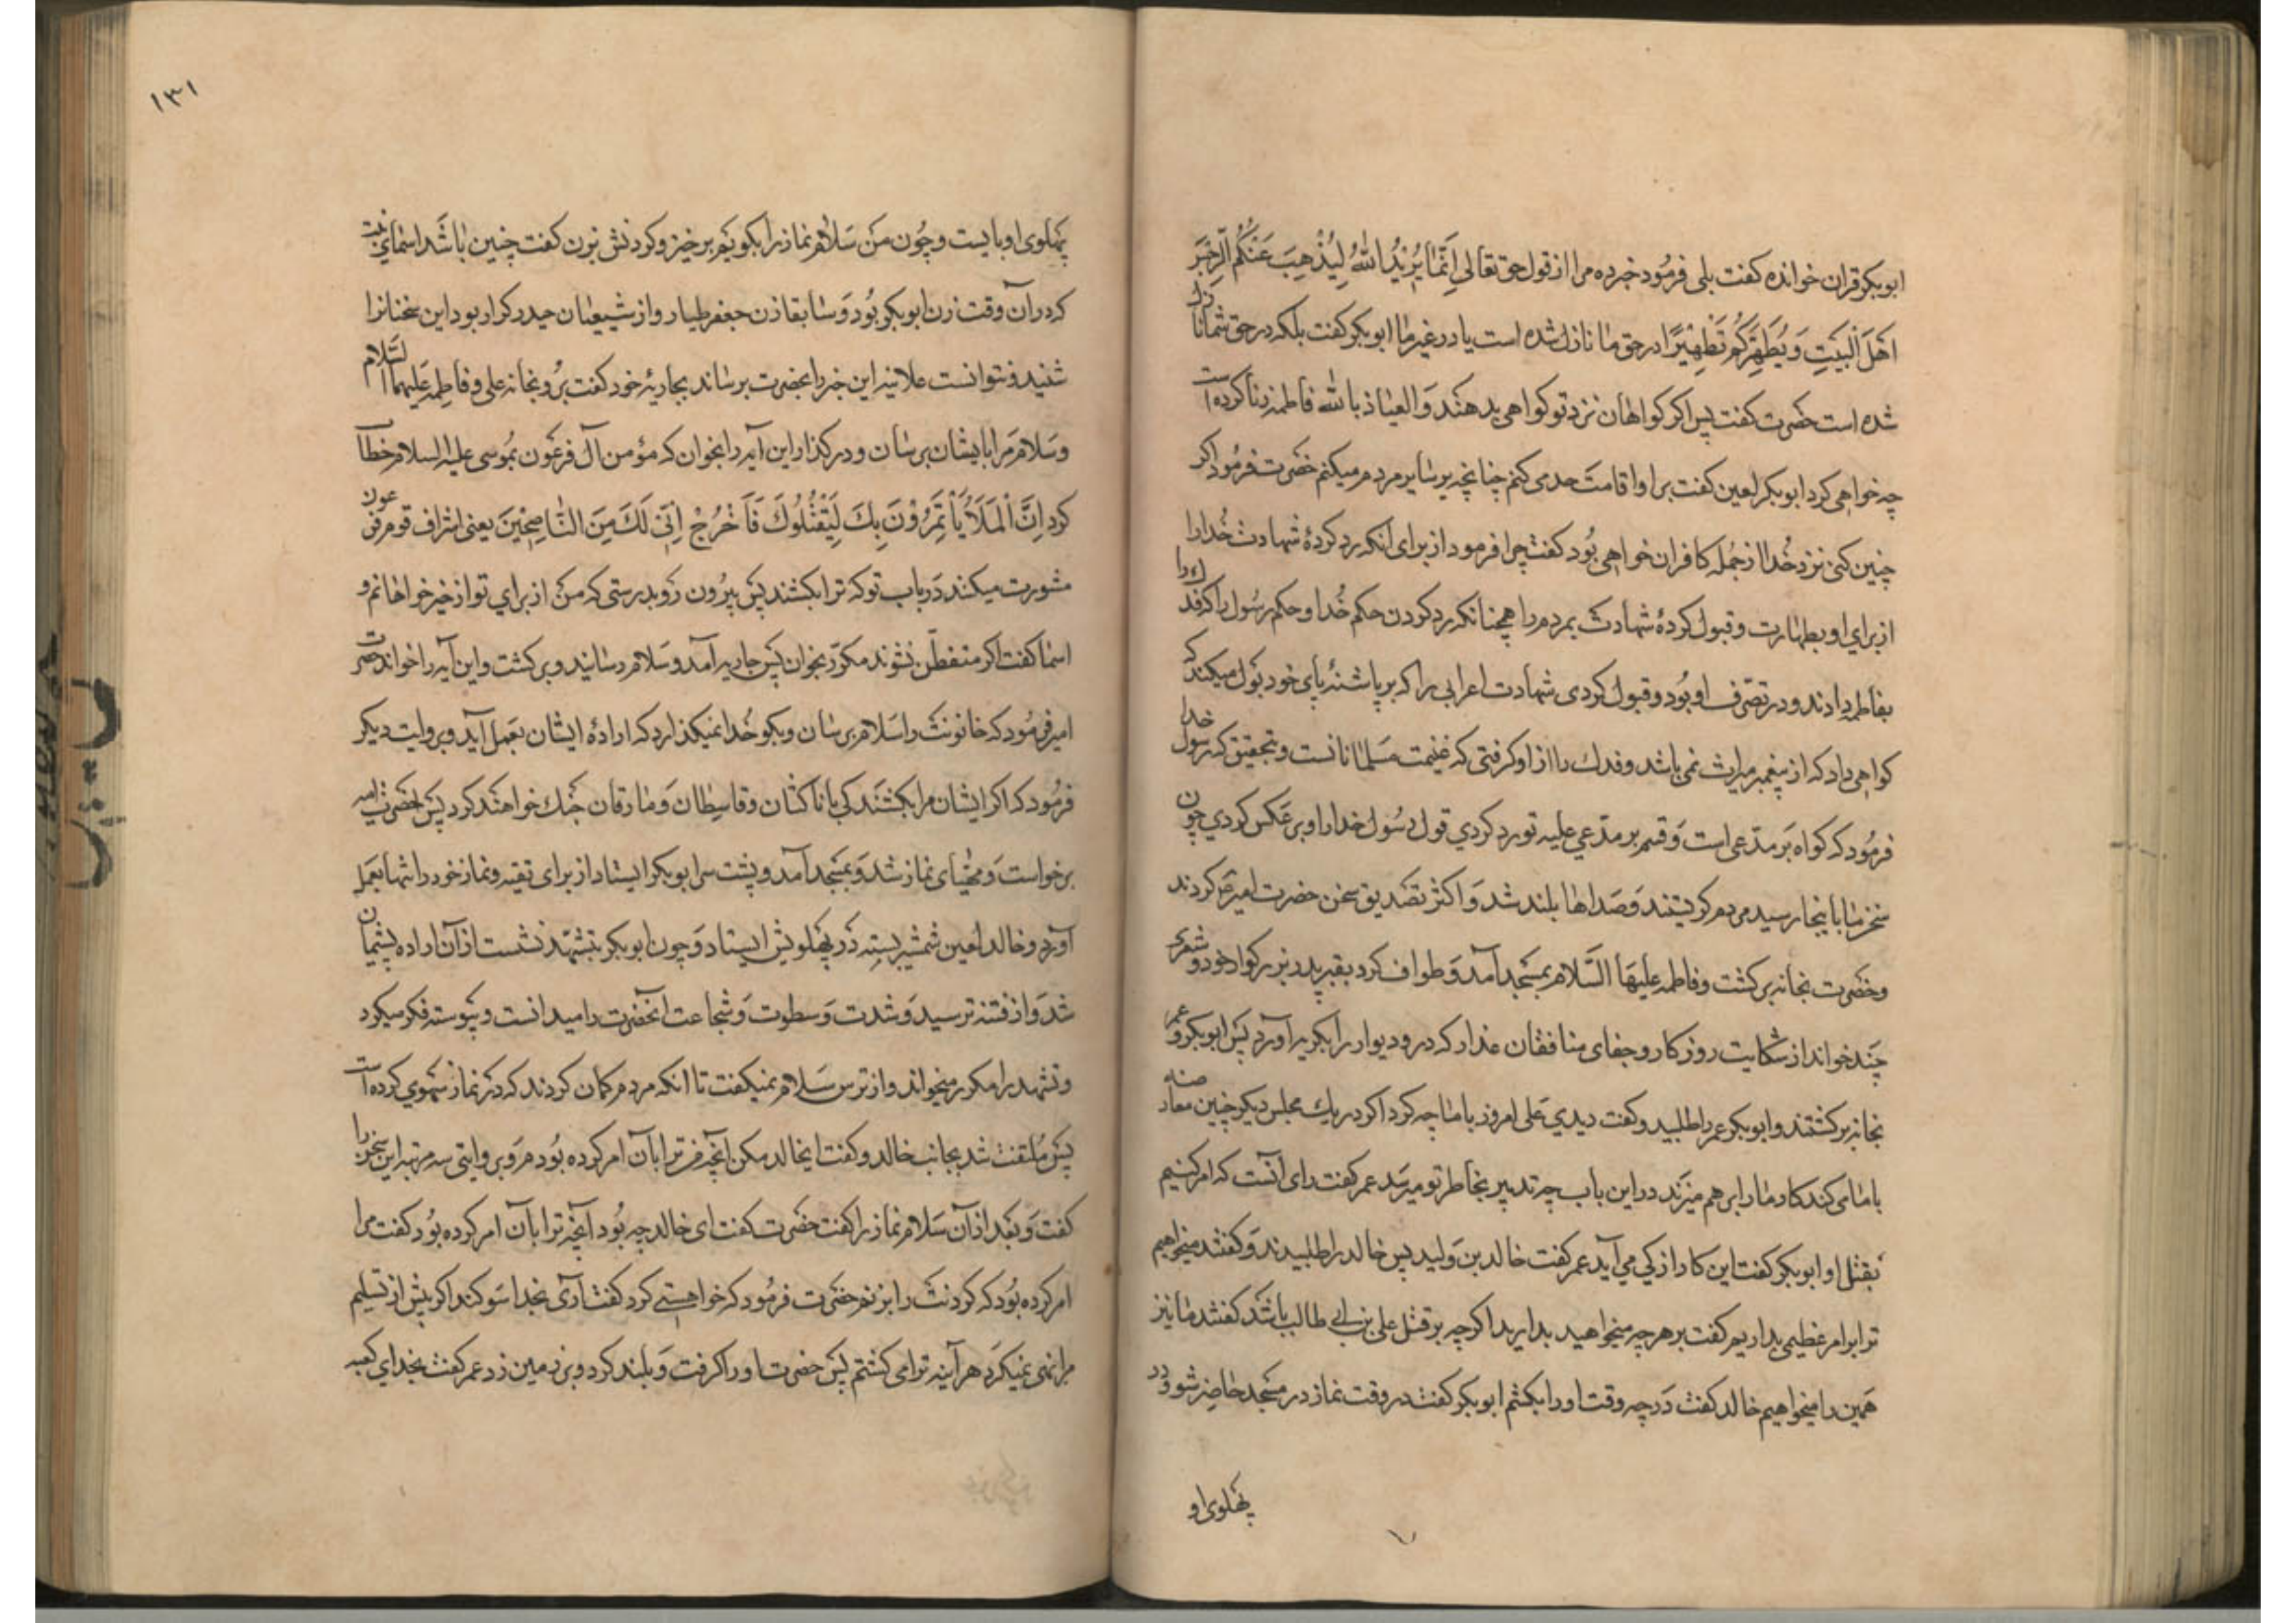 ابوبکر قران خوانده کفت بلی فرمود خبر ده مرا از قول حق تعالی اِنَّمٰا یُرِیْدُ اللهُ لِیُذْهِبَ عَنْکُمُ الرِّجْسَ
اَهْلَ الْبَیْتِ وَ یُطَهِّرَکُمْ تَطْهِیْرًا در حق ما نازل شده است یا در غیر ما ابوبکر کفت بلکه در حق شما نازل
شده است حضرت کفت پس اکر کواهان نزد تو کواهی بدهند و العیاذ بالله فاطمه زنا کرده است
چه خواهی کرد ابوبکر لعین کفت بر او اقامت حد می کنم چنانچه بر سایر مردم میکنم حضرت فرمود اکر
چنین کنی نزد خدا از جمله کافران خواهی بود کفت چرا فرمود از برای انکه رد کردهٔ شهادت خدا را
از برای او بطهارت و قبول کردهٔ شهادت مردم را همچنانکه رد کردن حکم خدا و حکم رسول را که فدك را
بفاطمه دادند و در تصرف او بود و قبول کردی شهادت اعرابی را که بر پاشنهٔ پای خود بول میکند که
کواهی داد که از پیغمبر میراث نمی باشد و فدك را از او کرفتی که غنیمت مسلمانانست و بتحقیق که رسول خدا
فرمود که کواه بر مدعی است و قسم بر مدعي علیه تو رد کردي قول رسول خدا را و بر عکس کردي چون
سخن ما باینجا رسید مردم کریستند و صداها بلند شد و اکثر تصدیق سخن حضرت امیر کردند
و حضرت بخانه برکشت و فاطمه علیها السلام بمسجد آمد و طواف کرد بقبر پدر بزرکوار خود و شعری
چند خواند از شکایت روزکار و جفای منافقان غدار که در و دیوار را بکریه آورد پس ابوبکر و عمر
بخانه برکشتند و ابوبکر عمر را طلبید و کفت دیدي علی امروز با ما چه کرد اکر در یك مجلس دیکر چنین معارضه
با ما می کند کار ما را بر هم میزند در این باب چه تدبیر بخاطر تو میرسد عمر کفت رای آنست که امر کنیم
بقتل او ابوبکر کفت این کار از کي مي آید عمر کفت خالد بن ولید پس خالد را طلبیدند و کفتند میخواهیم
ترا بر امر عظیمی بداریم کفت بر هر چه میخواهید بدارید اکرچه بر قتل علی بن ابی طالب باشد کفتند ما نیز
همین را میخواهیم خالد کفت در چه وقت او را بکشم ابوبکر کفت در وقت نماز در مسجد حاضر شو و در
پهلوی او
۱۳۱
پهلوی او بایست و چون من سلام نماز را بکویم برخیز و کردنش بزن کفت چنین باشد اسمای بنت
که در آن وقت زن ابوبکر بود و سابقا زن جعفر طیار و از شیعیان حیدر کرار بود این سخنانرا
شنید و نتوانست علانیه این خبر را بحضرت برساند بجاریهٔ خود کفت برو بخانه علی و فاطمه علیهما السلام
و سلام مرا بایشان برسان و در کذار این آیه را بخوان که مؤمن آل فرعون بموسی علیه السلام خطاب
کرد اِنَّ الْمَلَأَ یَأْتَمِرُوْنَ بِكَ لِیَقْتُلُوكَ فَاخْرُجْ اِنِّی لَكَ مِنَ النّٰاصِحِیْنَ یعنی اشراف قوم فرعون
مشورت میکنند در باب تو که ترا بکشند پس بیرون رو بدرستی که من از براي تو از خیرخواهانم و
اسما کفت اکر متفطّن نشوند مکرّر بخوان پس جاریه آمد و سلام رسانید و برکشت و این آیه را خواند حضرت
امیر فرمود که خاتونت را سلام برسان و بکو خدا نمیکذارد که ارادهٔ ایشان بعمل آید و بروایت دیکر
فرمود که اکر ایشان مرا بکشند کی با ناکثان و قاسطان و مارقان جنك خواهند کرد پس حضرت
برخواست و مهیّای نماز شد و بمسجد آمد و پشت سر ابوبکر ایستاد از برای تقیه و نماز خود را تنها بعمل
آورد و خالد لعین شمشیر بسته در پهلویش ایستاد و چون ابوبکر بتشهّد نشست از آن اراده پشیمان
شد و از فتنه ترسید و شدت و سطوت و شجاعت آنحضرت را میدانست و پیوسته فکر میکرد
و تشهد را مکرر میخواند و از ترس سلام نمیکفت تا انکه مردم کمان کردند که در نماز سهوي کرده است
پس ملتفت شد بجانب خالد و کفت ایخالد مکن آنچه من ترا بآن امر کرده بودم و بروایتی سه مرتبه این سخن را
کفت و بعد از آن سلام نماز را کفت حضرت کفت ای خالد چه بود آنچه ترا بآن امر کرده بود کفت مرا
امر کرده بود که کردنت را بزنم حضرت فرمود که خواهستے کرد کفت آرَی بخدا سوکند اکر پیش از تسلیم
مرا نهی نمیکرد هر آینه ترا می کشتم پس حضرت او را کرفت و بلند کرد و بر زمین زد عمر کفت بخداي کعبه